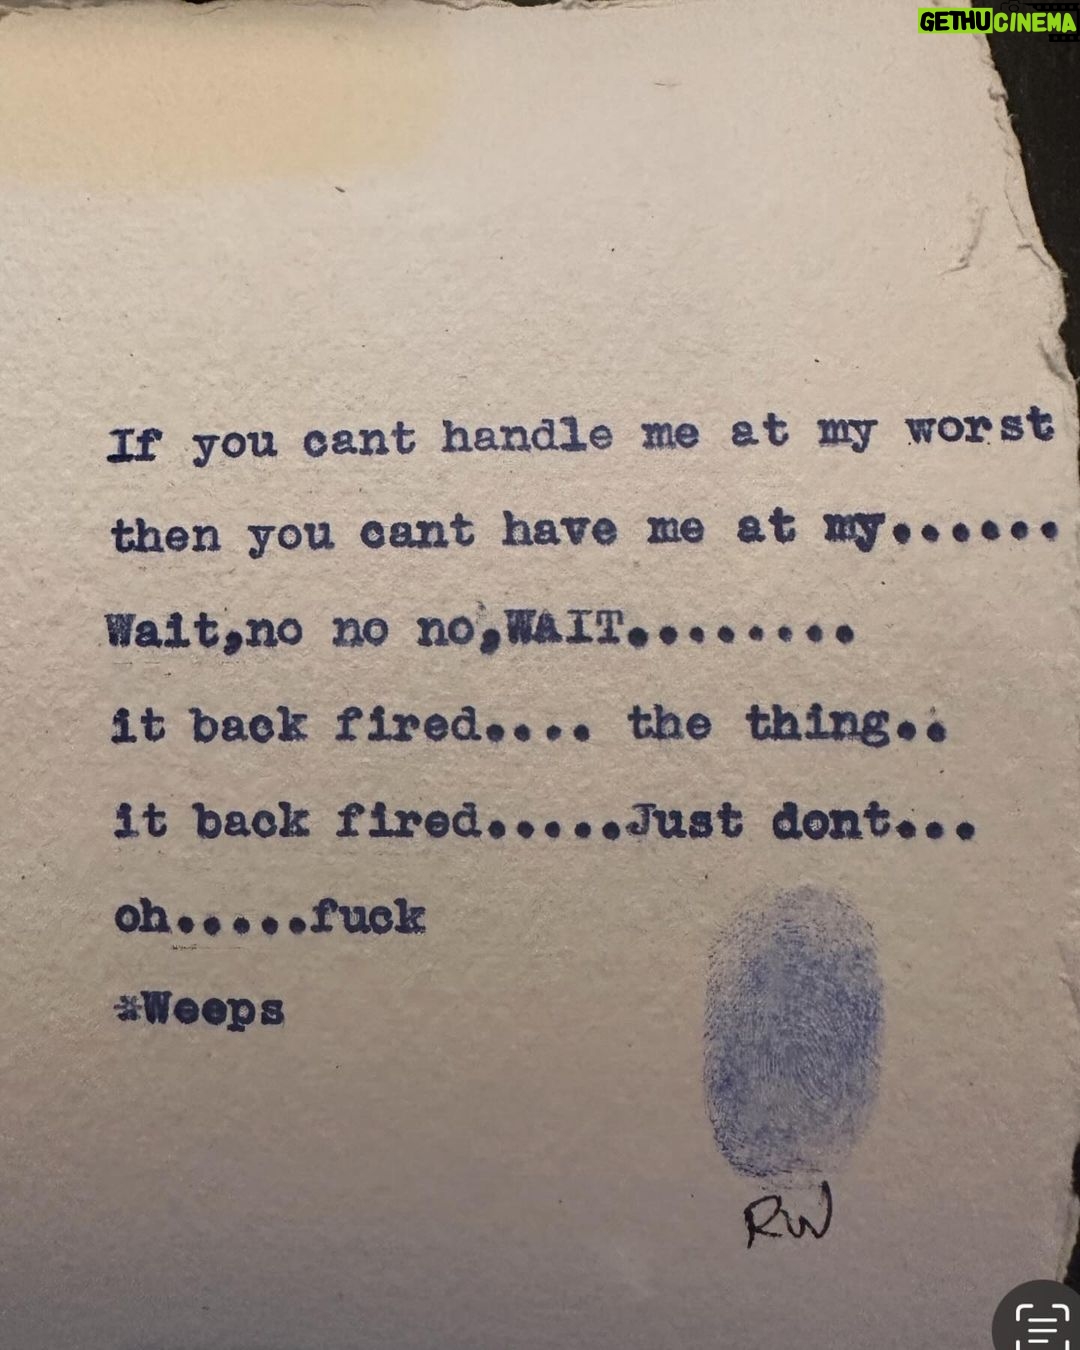 GETHUCINEMA
If you cant handle me at my worst
then you cant have me at my......
Wait,no no no,WAIT........
it back fired.... the thing..
it back fired.....Just dont...
oh.....fuck
*Weeps
RW